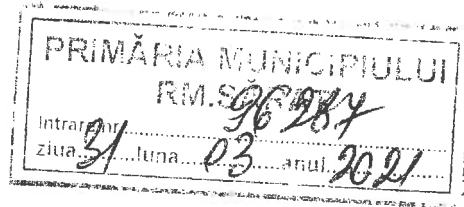 PRIMĂRIA MUNICIPIULUI
RM. SĂRAT
Intrare nr. 96287
ziua 31 luna 03 anul 2021